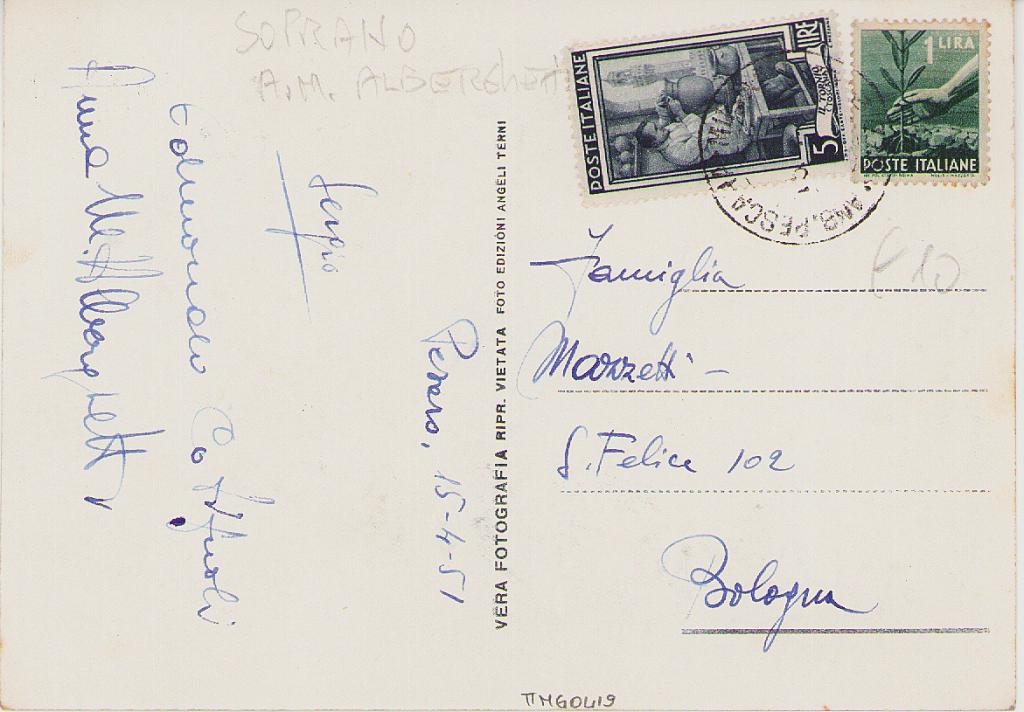 SOPRANO
A.M. ALBERGHETTI
POSTE ITALIANE
5 LIRE
1 LIRA
POSTE ITALIANE
AMB. PESCARA
Anna M. Alberghetti
Edmondo
Sergio
Pesaro, 15-4-51
VERA FOTOGRAFIA RIPR. VIETATA FOTO EDIZIONI ANGELI TERNI
Famiglia
€ 10
Mazzetti -
S. Felice 102
Bologna
TTMG0419